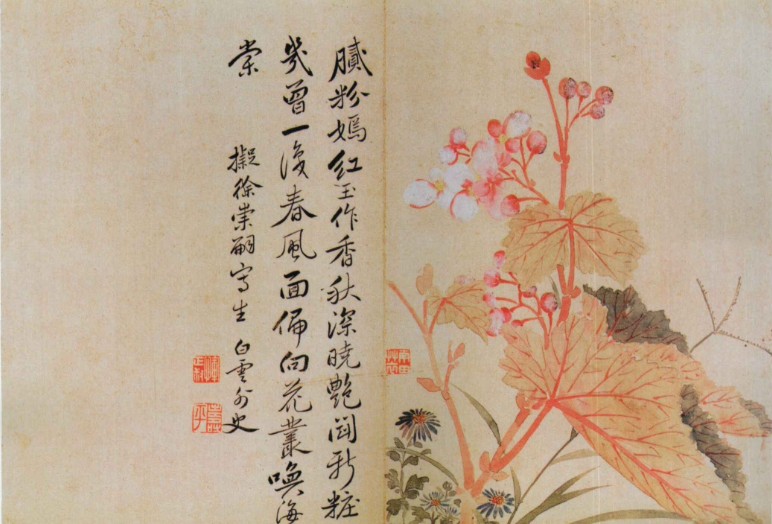 膩粉嫣红玉作香秋深曉艷鬥新粧
幾曾一復春風面偏向花叢喚海
棠
擬徐崇嗣寫生 白雲外史